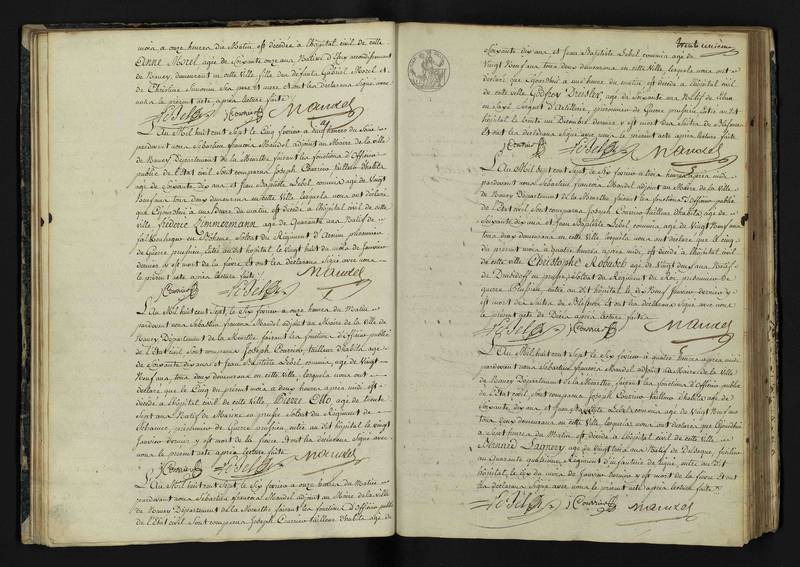 mois a onze heures du Matin, est décédée à l'hôpital civil de cette
Anne Morel, agée de Soixante onze ans Native d'Essey arrondissement
de Nancy, demeurant en cette ville fille des défunts Gabriel Morel et
de Christine Simonin Ses pere et mere et ont les déclarans Signé avec
nous le présent acte après lecture faite
LeBel J Courrier Mandel
L'An Mil huit cent Sept le Cinq février a heures du Soir
pardevant nous Sébastien françois Mandel adjoint au Maire de la ville
de Nancy Département de la Meurthe, faisant les fonctions d'Officier
public de l'Etat civil Sont comparus Joseph Courrier tailleur d'habits
agé de Soixante dix ans et Jean Baptiste Lebel, commis agé de Vingt
Neuf ans tous deux demeurans en cette Ville, lesquels nous ont déclaré
que Cejourd'hui à heures du matin est décédé à l'hôpital civil de cette
ville Frédéric Zimmermann, agé de Quarante ans Natif de
en Bohême, Soldat du Régiment d'Arnim prisonnier
de Guerre prussien, entré au dit hôpital, le vingt huit du mois de janvier
dernier, y est mort de la fievre, Et ont les déclarans Signé avec nous
le présent acte après lecture faite
J Courrier LeBel Mandel
L'An Mil huit cent Sept, le Six février a onze heures du Matin
pardevant nous Sébastien françois Mandel adjoint au Maire de la ville de
Nancy Département de la Meurthe, faisant les fonctions d'Officier public
de l'Etat civil Sont comparus Joseph Courrier, tailleur d'habits, agé
de Soixante dix ans, et Jean Baptiste Lebel commis, agé de Vingt
Neuf ans, tous deux demeurans en cette ville, lesquels nous ont
déclaré que le Cinq du présent mois a deux heures après midi est
décédé à l'hôpital civil de cette Ville, Pierre Otto, agé de trente
Sept ans Natif de en prusse Soldat du Régiment de
prisonnier de Guerre prussien, entré au dit hôpital le vingt
Janvier dernier y est mort de la fievre, Et ont les déclarans Signé avec
nous le présent acte après lecture faite
J Courrier LeBel Mandel
L'An Mil huit cent Sept, le Six février a onze heures du Matin
pardevant nous Sébastien françois Mandel adjoint au Maire de la ville
de Nancy Département de la Meurthe faisant les fonctions d'Officier public
de l'Etat civil Sont comparus Joseph Courrier tailleur d'habits agé de
trente unième
Soixante dix ans et Jean Baptiste Lebel commis agé de
Vingt Neuf ans tous deux demeurans en cette Ville, lesquels nous ont
déclaré que Cejourd'hui à heures du matin est décédé à l'hôpital civil
de cette ville Godfroy agé de Soixante ans Natif de
en Saxe Sergent d'Artillerie, prisonnier de Guerre prussien entré au dit
hôpital le trente un Décembre dernier y est mort des Suites de blessures
Et ont les déclarans Signé avec nous le présent acte après lecture faite
J Courrier LeBel Mandel
L'An Mil huit cent Sept, le Six février a trois heures après midi
pardevant nous Sébastien françois Mandel adjoint au Maire de la Ville
de Nancy Département de la Meurthe, faisant les fonctions d'Officier public
de l'Etat civil Sont comparus Joseph Courrier tailleur d'habits agé de
Soixante dix ans, et Jean Baptiste Lebel commis, agé de Vingt Neuf ans
tous deux demeurans en cette Ville, lesquels nous ont déclaré que le cinq
du présent mois à quatre heures après midi, est décédé à l'hôpital civil
de cette ville Christophe agé de Vingt deux ans Natif
de en prusse, Soldat du Régiment du Roi, prisonnier de
guerre Prussien, entré au dit hôpital, le dix Neuf Janvier dernier y
est mort de Suites de blessures Et ont les déclarans Signé avec nous le
présent acte de Décès après lecture faite
LeBel J Courrier Mandel
L'An Mil huit cent Sept le Six février a quatre heures après midi
pardevant nous Sébastien françois Mandel adjoint au Maire de la Ville
de Nancy Département de la Meurthe, faisant les fonctions d'Officier public
de l'Etat civil, Sont comparus Joseph Courrier tailleur d'habits agé de
Soixante dix ans, et Jean Baptiste Lebel commis agé de Vingt Neuf ans
tous deux demeurans en cette Ville, lesquels nous ont déclaré que Cejourd'hui
à Sept heures du Matin est décédé à l'hôpital civil de cette ville
Bernard agé de Vingt trois ans Natif de fusilier
au quarante quatrieme Régiment d'infanterie de ligne, entré au dit
hôpital, le dix du mois de Janvier dernier y est mort de la fievre Et ont
les déclarans Signé avec nous le présent acte après lecture faite
LeBel J Courrier Mandel